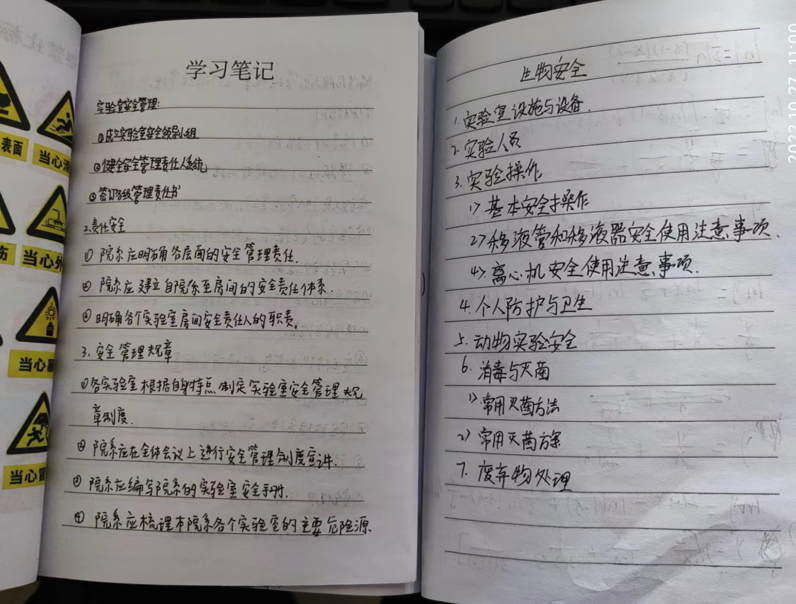 表面
当心
当心
当心
当心
学习笔记
实验室安全管理:
①成立实验室安全领导小组
②健全安全管理责任人系统
③签订各级管理责任书
2.责任安全
① 院系应明确各层面的安全管理责任.
② 院系应建立自院系至房间的安全责任体系.
③ 明确各个实验室房间安全责任人的职责.
3、安全管理规章
①各实验室根据自身特点,制定实验室安全管理规
章制度.
② 院系应在全体会议上进行安全管理制度宣讲.
③ 院系应编写院系的实验室安全手册.
④ 院系应梳理本院系各个实验室的主要危险源
生物安全
1.实验室设施与设备.
2.实验人员
3.实验操作
1) 基本安全操作
2)移液管和移液器安全使用注意事项.
4)离心机安全使用注意事项.
4.个人防护与卫生
5.动物实验安全
6.消毒与灭菌
1)常用灭菌方法
2)常用灭菌方案
7.废弃物处理
2022.10.27 11:00